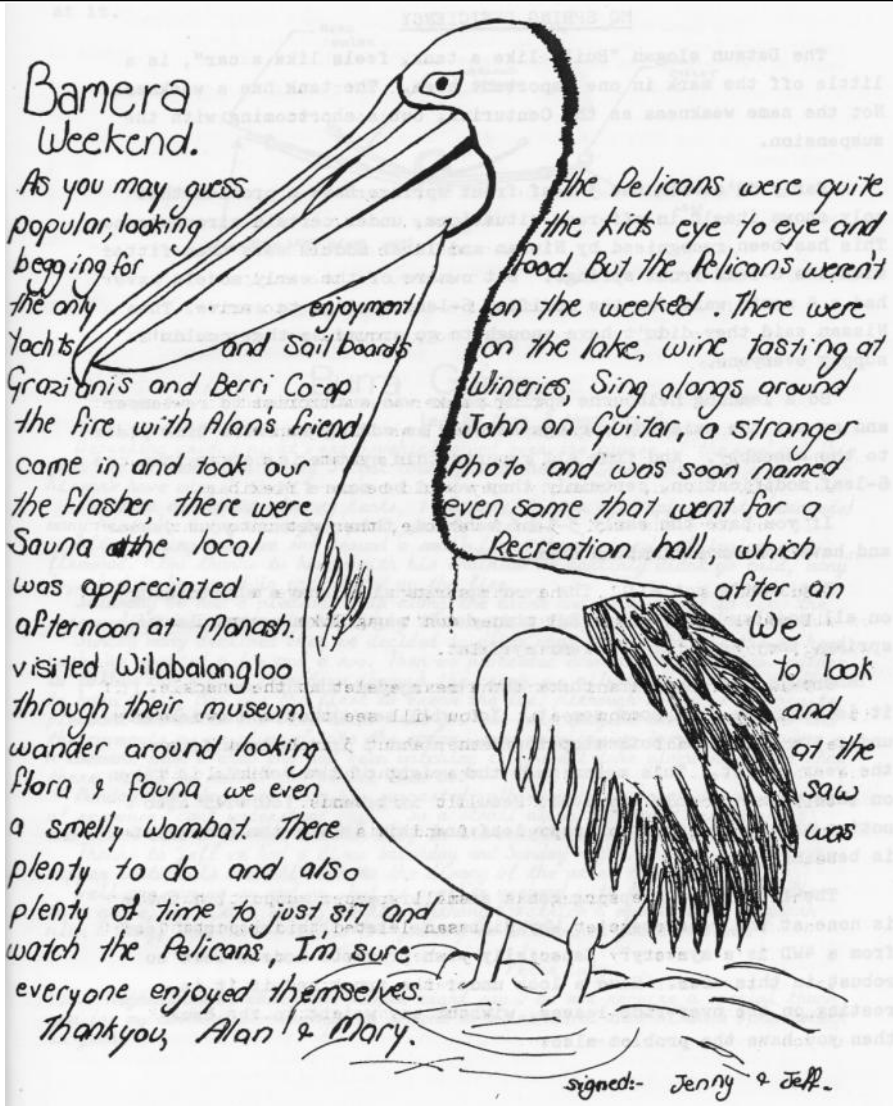 Bamera
Weekend.
As you may guess the Pelicans were quite
popular looking the kids eye to eye and
begging for food, but the Pelicans weren't
the only enjoyment on the weekend. There were
Yachts and Sail boards on the lake, wine tasting at
Grazianis and Berri Coop Wineries, Sing alongs around
the fire with Alan's friend John on Guitar, a stranger
came in and took our Photo and was soon named
the Flasher. There were even some that went for a
Sauna at the local Recreation hall which
was appreciated after an
afternoon at Monash. We
visited Wilabalangloo to look
through their museum and
wander around looking at the
flora & found, we even saw
a smelly Wombat. There was
plenty to do and also
plenty of time to just sit and
watch the Pelicans, I'm sure
everyone enjoyed themselves.
Thankyou, Alan & Mary.
signed:- Jenny & Jeff.